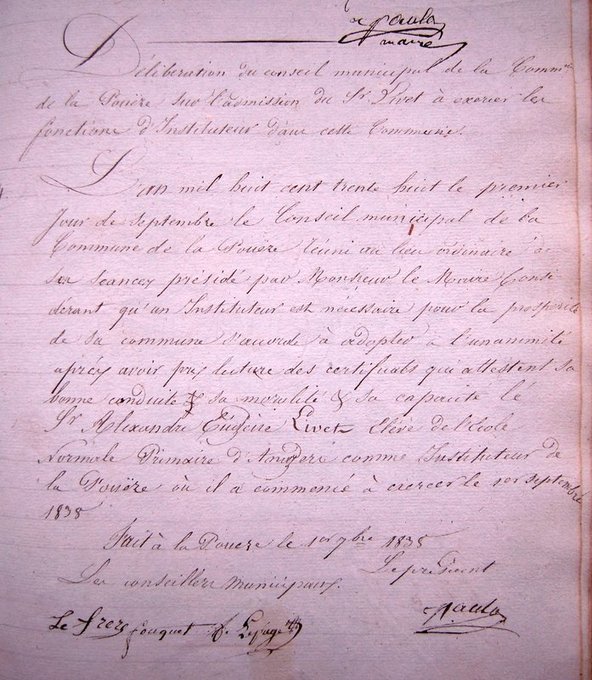 Paula
maire
Délibération du conseil municipal de la Comm.ne
de la Pouëze sur l'admission du Sr. Livet à exercer les
fonctions d'Instituteur dans cette Commune.
L'an mil huit cent trente huit le premier
Jour de septembre le Conseil municipal de la
Commune de la Pouëze réuni au lieu ordinaire de
ses séances présidé par Monsieur le Maire Consi
dérant qu'un Instituteur est nécessaire pour la prospérité
de sa commune s'accorde à adopter à l'unanimité
après avoir pris lecture des certificats qui attestent sa
bonne conduite & sa moralité & sa capacité le
Sr. Alexandre Eugène Livet Elève de l'école
Normale Primaire d'Angers comme Instituteur de
la Pouëze où il a commencé à exercer le 1er septembre
1838
Fait à la Pouëze le 1er 7bre 1838
Le président
Les conseillers municipaux.
Le frere fouquet Lepage
Paula